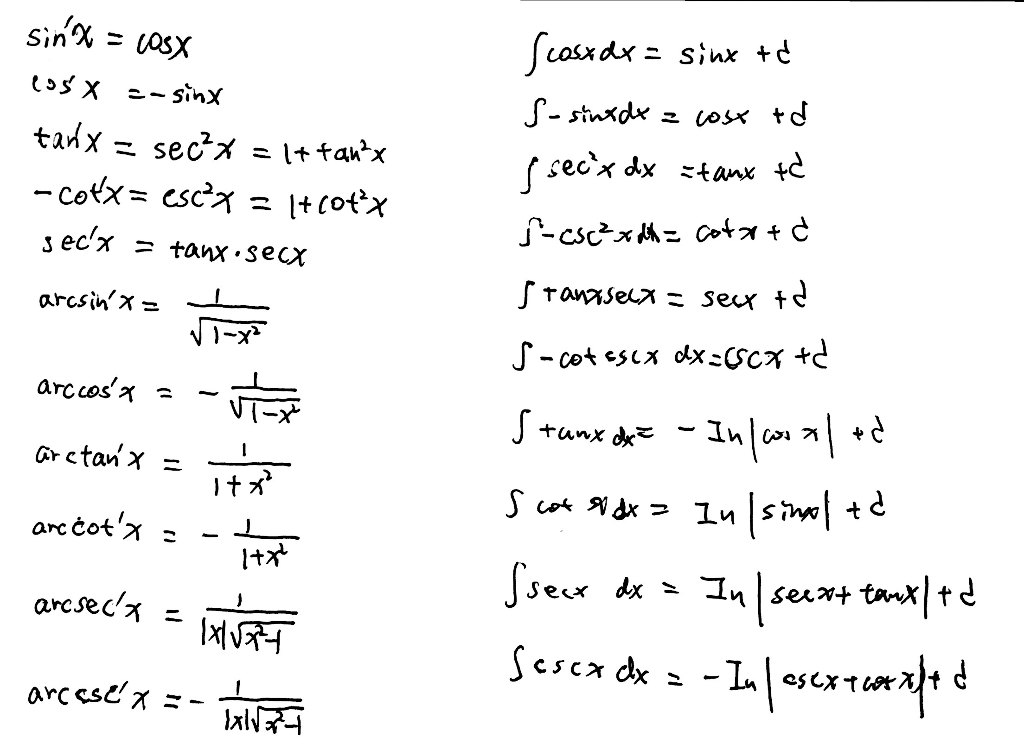 sin'x = cosx
cos'x = -sinx
tan'x = sec²x = 1+tan²x
-cot'x = csc²x = 1+cot²x
sec'x = tanx·secx
arcsin'x = 1/√(1-x²)
arccos'x = -1/√(1-x²)
arctan'x = 1/(1+x²)
arccot'x = -1/(1+x²)
arcsec'x = 1/(|x|√(x²-1))
arccsc'x = -1/(|x|√(x²-1))
∫cosxdx = sinx +d
∫-sinxdx = cosx +d
∫sec²x dx = tanx +d
∫-csc²xdx = cotx+d
∫tanxsecx = secx +d
∫-cot cscx dx = cscx +d
∫tanx dx = -In|cos x| +d
∫cot xdx = In|sinx| +d
∫secx dx = In|secx+tanx|+d
∫cscx dx = -In|cscx+cotx|+d